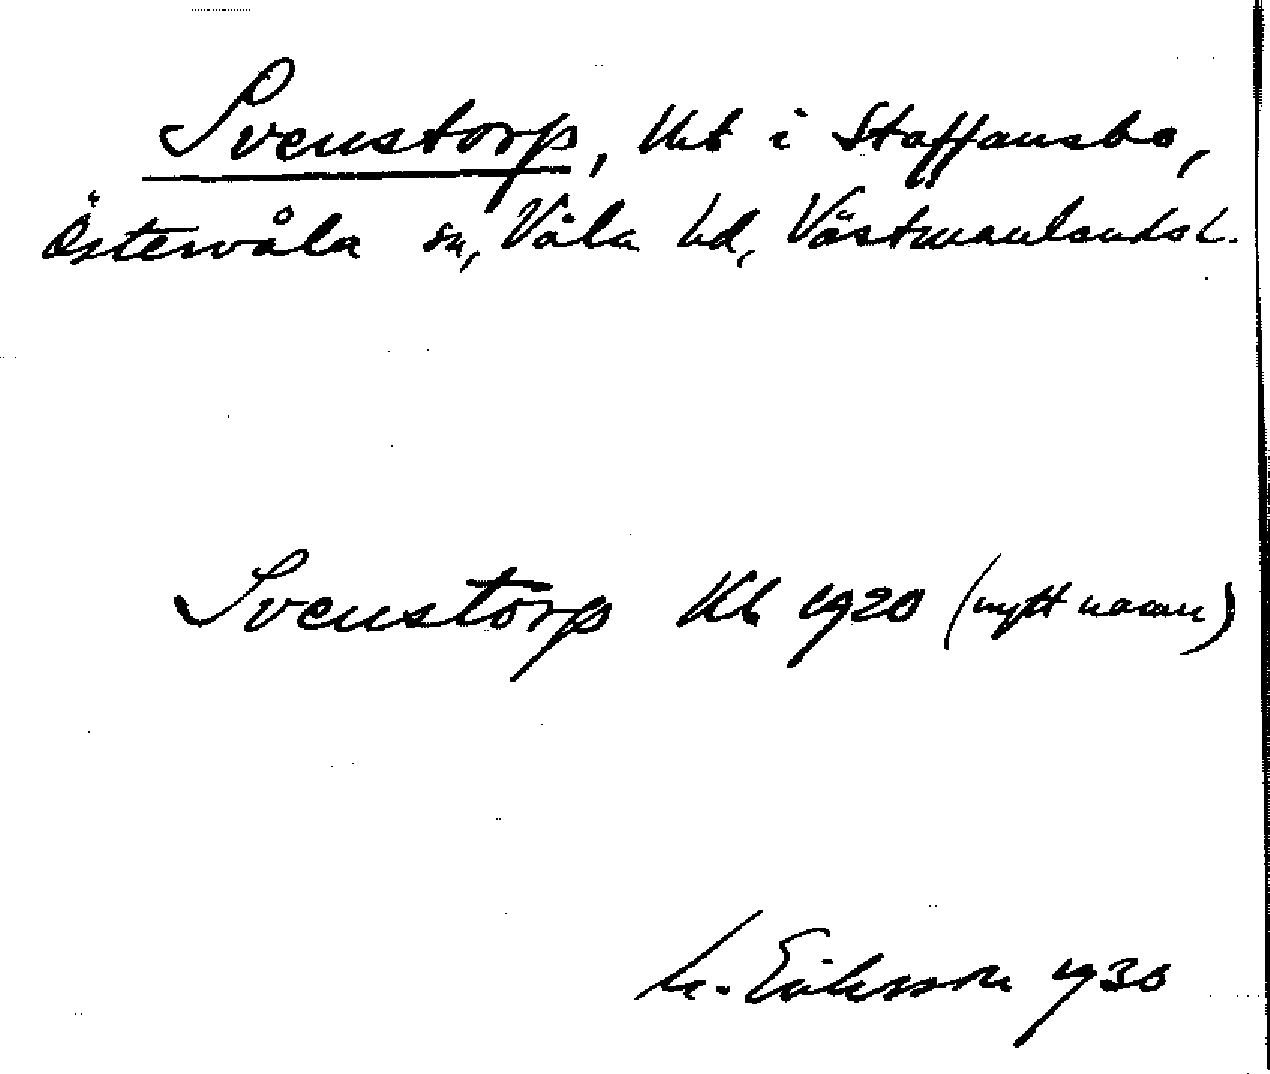 Svenstorp, Utb i Staffansbo,
Östervåla sn, Våla hd, Västmanlands l.
Svenstorp Kb 1920 (nytt namn)
M. Eriksson 1930